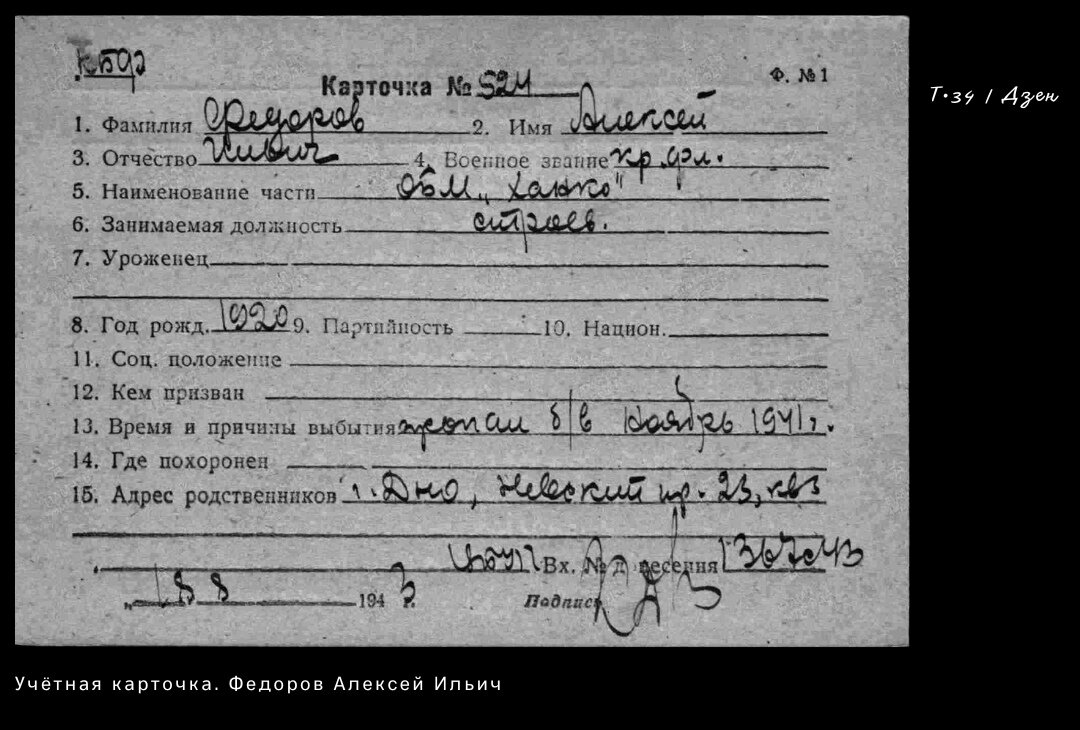 КБФ
Карточка № 524
Ф. №1
Т-34 | Дзен
1. Фамилия Федоров 2. Имя Алексей
3. Отчество Ильич 4. Военное звание кр. фл.
5. Наименование части ОБМ „Ханко"
6. Занимаемая должность строев.
7. Уроженец
8. Год рожд. 1920 9. Партийность 10. Национ.
11. Соц. положение
12. Кем призван
13. Время и причины выбытия пропал б/в Ноябрь 1941 г.
14. Где похоронен
15. Адрес родственников г. Дно, Невский пр. 23, кв 3
Вх. № донесения
194 3 г.
Подпись
Учётная карточка. Федоров Алексей Ильич